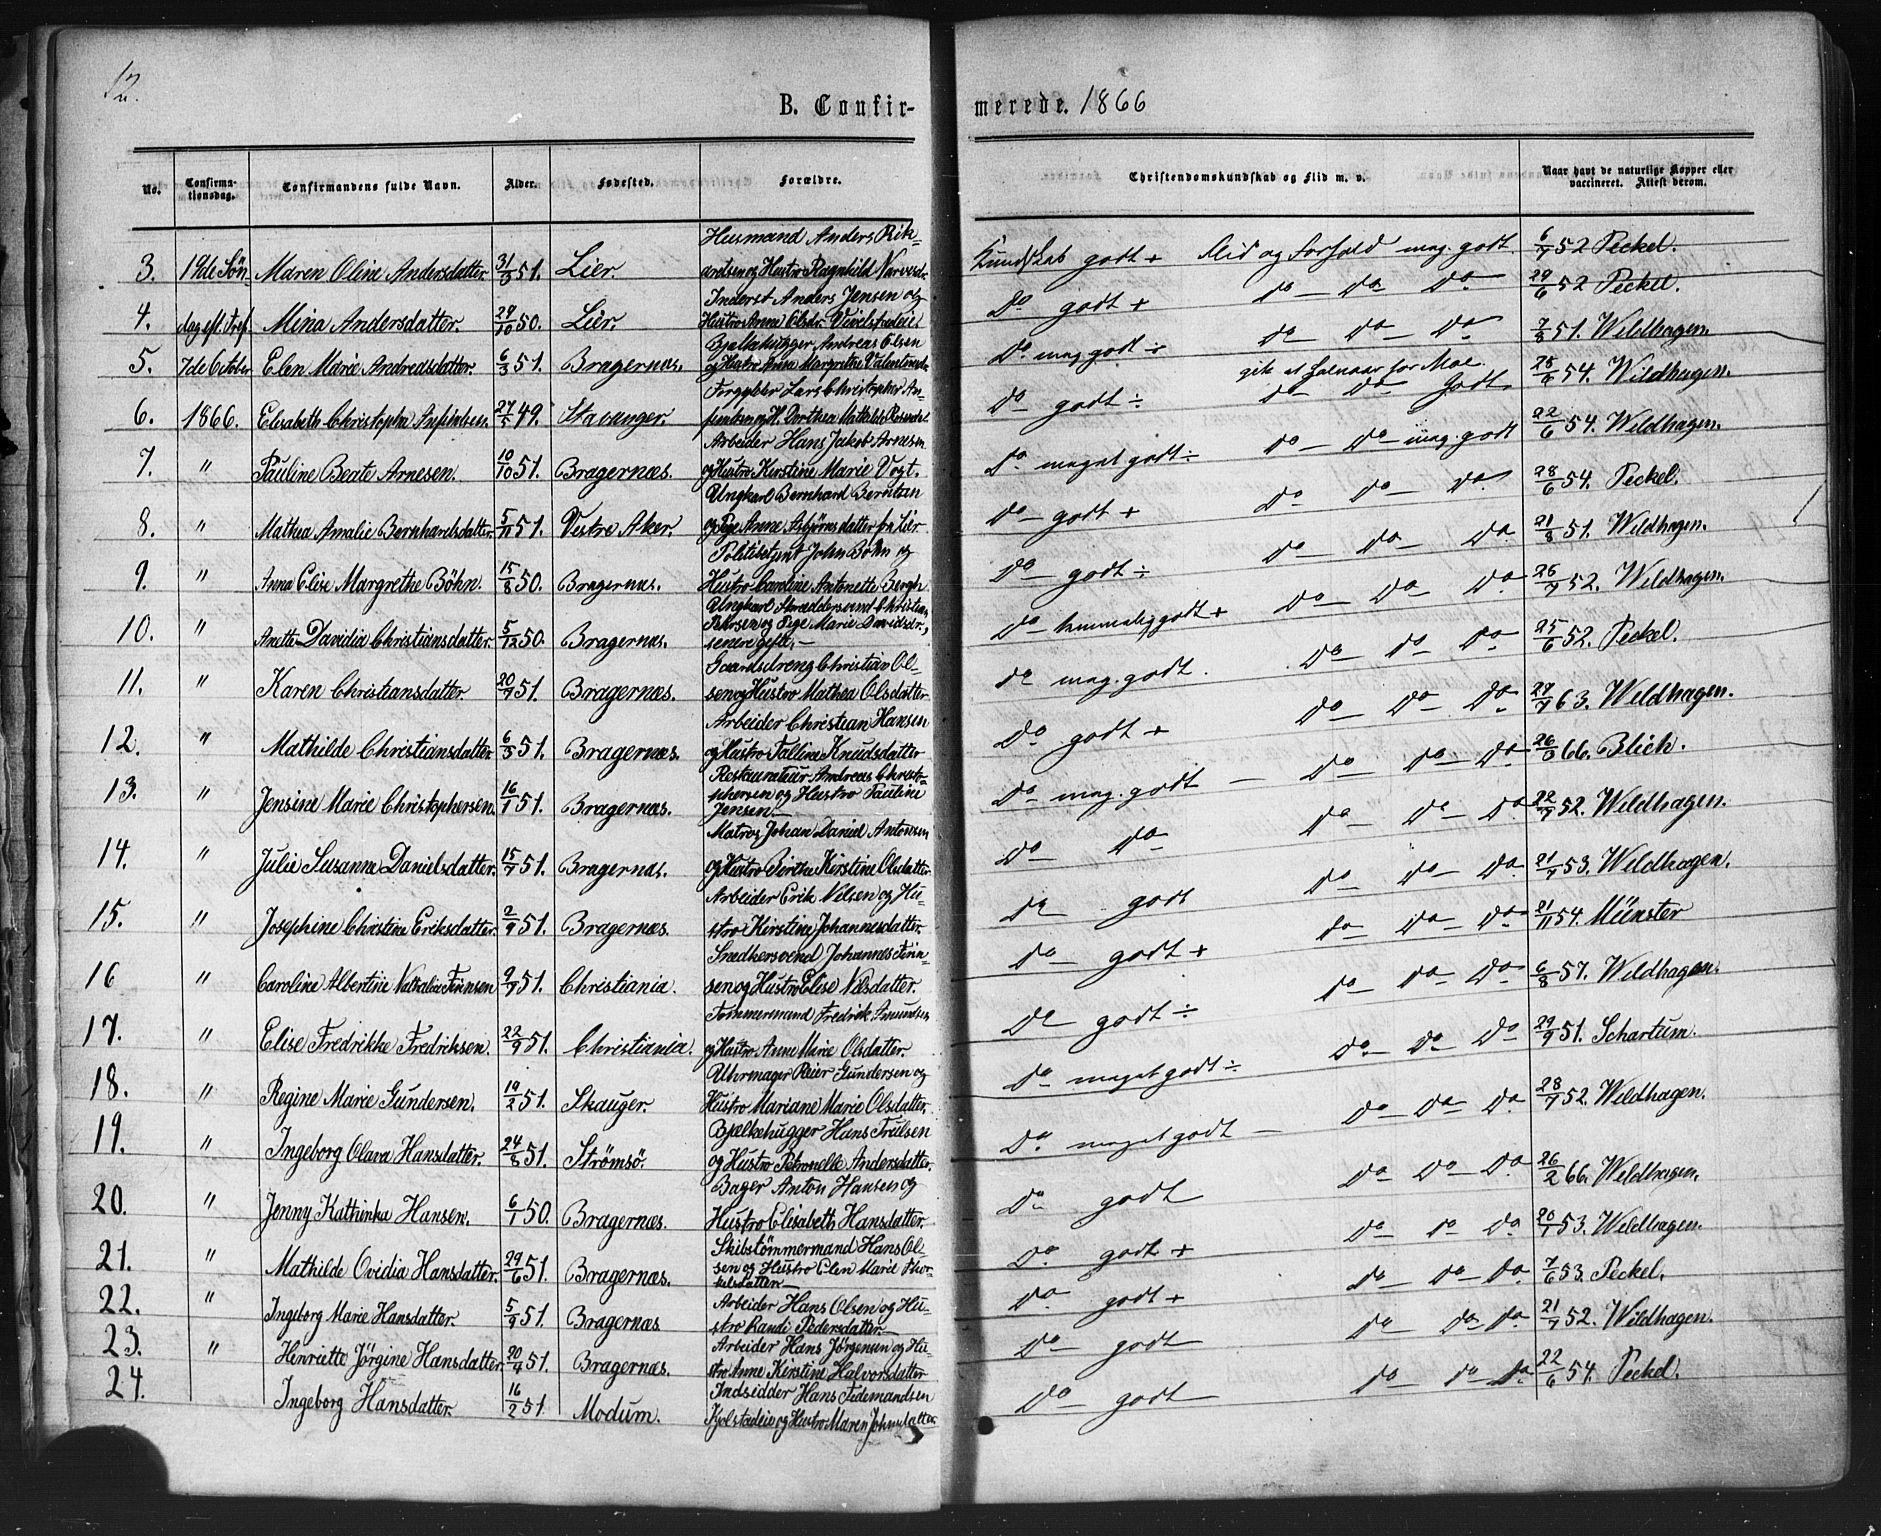 12.
B. Confirmerede. 1866
No. Confirmationsdag. Confirmandens fulde Navn. Alder. Fødested. Forældre. Christendomskundskab og Flid m. v. Naar havt de naturlige Kopper eller vaccineret. Attest derom.
Husmand Anders Rik-
3. 19de Søn Maren Oline Andersdatter. 31/3 51. Lier. og Hustro Ragnhild Kundskab godt + Flid og Forhold mag. godt. 6/7 52 Peckel.
Inderst Anders Jensen og
4. dag eft. Tref. Mina Andersdatter. 29/10 50. Lier. Hustro Anne Olsdr. Do godt + Do Do Do 29/6 52 Peckel.
Bjelkehugger Andreas Olsen
5. 7de October Elen Marie Andreasdatter. 6/3 51. Bragernæs. og Hustro Anne Margrethe Do mag godt ÷ Do Do Do 7/8 51. Wildhagen.
Lars Christopher An-
6. 1866. Elisabeth Christopha 27/5 49. Stavanger. Dorthea Mathilde Do godt ÷ Do Do Godt 25/6 54. Wildhagen.
Arbeider Hans Jakob Arnesen
7. " Pauline Beate Arnesen. 10/10 51. Bragernæs. og Hustro Kirstine Marie Vogt. Do meget godt ÷ Do Do mag. godt 22/6 54. Wildhagen.
Ungkarl Bernhard Berntsen
8. " Mathea Amalie Bernhardsdatter. 5/11 51. Vestre Aker. og Pige Anne Asbjørnsdatter fra Lier Do godt + Do Do Do 28/6 54. Peckel.
Politibetjent John Bøhn og
9. " Anna Elise Margrethe Bøhn. 15/8 50. Bragernæs. Hustro Caroline Antonette Bergh Do godt ÷ Do Do Do 21/8 51. Wildhagen.
Ungkarl Skræddersvend Christian
10. " Anette Davidia Christiansdatter. 5/12 50. Bragernæs. Pettersen og Pige Marie Davidsdr., Do temmelig godt + Do Do Do 26/7 52. Wildhagen.
senere gift. —
Gaardsdreng Christian Ol-
11. " Karen Christiansdatter. 20/7 51. Bragernæs. sen og Hustro Mathea Olsdatter Do mag. godt. Do Do Do 25/6 52. Peckel.
Arbeider Christian Hansen
12. " Mathilde Christiansdatter. 6/3 51. Bragernæs. og Hustro Talline Knudsdatter Do godt + Do Do Do 27/7 63. Wildhagen.
Restauratør Andreas Christo-
13. " Jensine Marie Christophersen. 16/1 51. Bragernæs. phersen og Hustro Pauline Do mag. godt — Do Do Do 26/3 66. Blich.
Jensen. —
Matros Johan Daniel Antonsen
14. " Julie Susanne Danielsdatter. 15/7 51. Bragernæs. og Hustro Birthe Kirstine Olsdatter Do Do Do Do Do 22/7 52. Wildhagen.
Arbeider Erik Nilsen og Hu-
15. " Josephine Christine Eriksdatter. 2/9 51. Bragernæs. stro Kirstine Johannesdatter. Do godt Do Do Do 21/7 53. Wildhagen.
Snedkersvend Johannes Finn-
16 " Caroline Albertine Nathalia Finnsen 9/7 51. Christiania. sen og Hustro Elise Nilsdatter. Do godt + Do Do Do 21/11 54. Münster
Tømmermand Fredrik Amundsen
17. " Elise Fredrikke Fredriksen. 22/9 51. Christiania. og Hustro Anne Marie Olsdatter. Do godt ÷ Do Do Do 6/8 57. Wildhagen.
Uhrmager Reier Gundersen og
18. " Regine Marie Gundersen. 19/2 51. Skauger. Hustro Mariane Marie Olsdatter. Do meget godt ÷ Do Do Do 29/9 51. Schartum.
Bjælkehugger Hans Trulsen
19. " Ingeborg Olava Hansdatter. 24/8 51. Strømsö. og Hustro Petronelle Andersdatter. Do meget godt — Do Do Do 28/7 52. Wildhagen.
Bager Anton Hansen og
20. " Jenny Kathinka Hansen. 6/1 50. Bragernæs. Hustro Elisabeth Hansdatter. Do godt — Do Do Do 26/2 66. Wildhagen.
Skibstömmermand Hans Ol-
21. " Mathilde Ovidia Hansdatter. 29/6 51. Bragernæs. sen og Hustro Elen Marie Thor- Do godt + Do Do Do 20/7 53. Wildhagen.
kelsdatter —
Arbeider Hans Olsen og Hu-
22. " Ingeborg Marie Hansdatter. 5/9 51. Bragernæs stro Randi Pedersdatter. — Do godt + Do Do Do 7/6 53. Peckel.
Arbeider Hans Jørgensen og Hu-
23. " Henriette Jørgine Hansdatter. 20/4 51. Bragernæs. stro Anne Kirstine Halvorsdatter Do godt Do Do Do 21/7 52. Wildhagen.
Indsidder Hans Tidemandsen
24. Ingeborg Hansdatter. 16/2 51. Modum. og Hustro Maren Johnsdatter. Do godt — Do Do Do 22/6 54. Peckel.